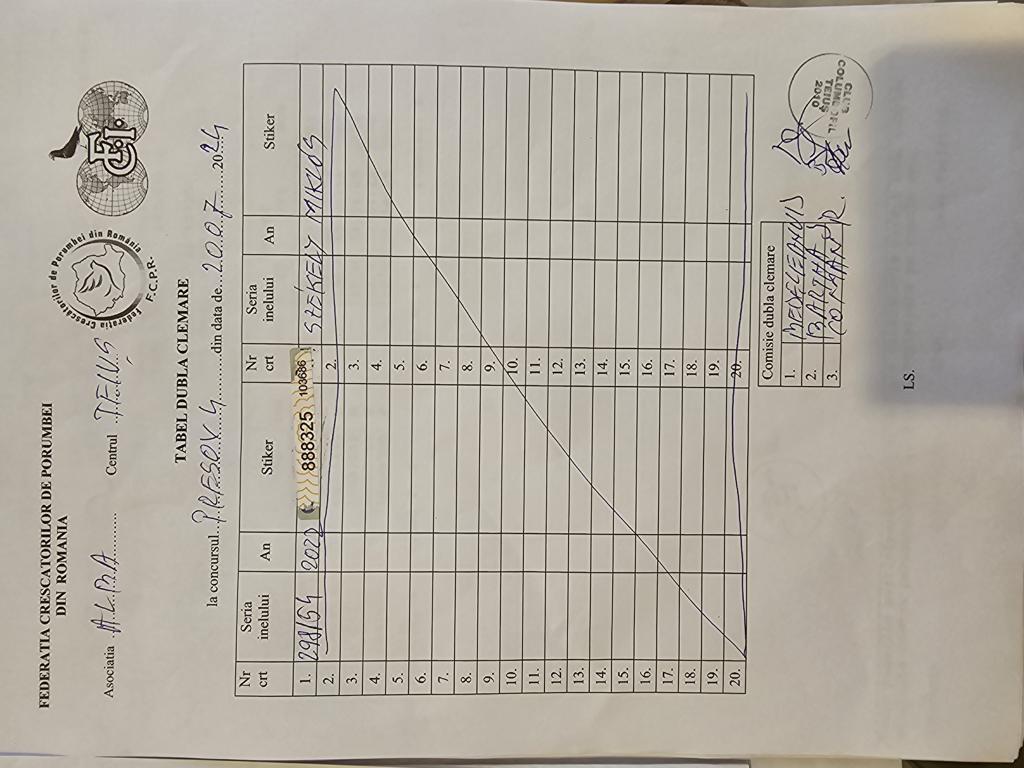 FEDERATIA CRESCATORILOR DE PORUMBEI
DIN ROMANIA
Federația Crescătorilor de Porumbei din România
F.C.P.R.
Asociatia A.L.Ph.A.......... Centrul TEIUȘ
TABEL DUBLA CLEMARE
la concursul...PRESOV 4..........din data de...20.07.......2024
Nr crt Seria inelului An Stiker Nr crt Seria inelului An Stiker
1. 298154 2022 888325 103686 1. SZÉKELY MIKLÓS
2. 2.
3. 3.
4. 4.
5. 5.
6. 6.
7. 7.
8. 8.
9. 9.
10. 10.
11. 11.
12. 12.
13. 13.
14. 14.
15. 15.
16. 16.
17. 17.
18. 18.
19. 19.
20. 20.
Comisie dubla clemare
1.
2.
3.
CLUB
COLUMBOFIL
TEIUȘ
2010
LS.